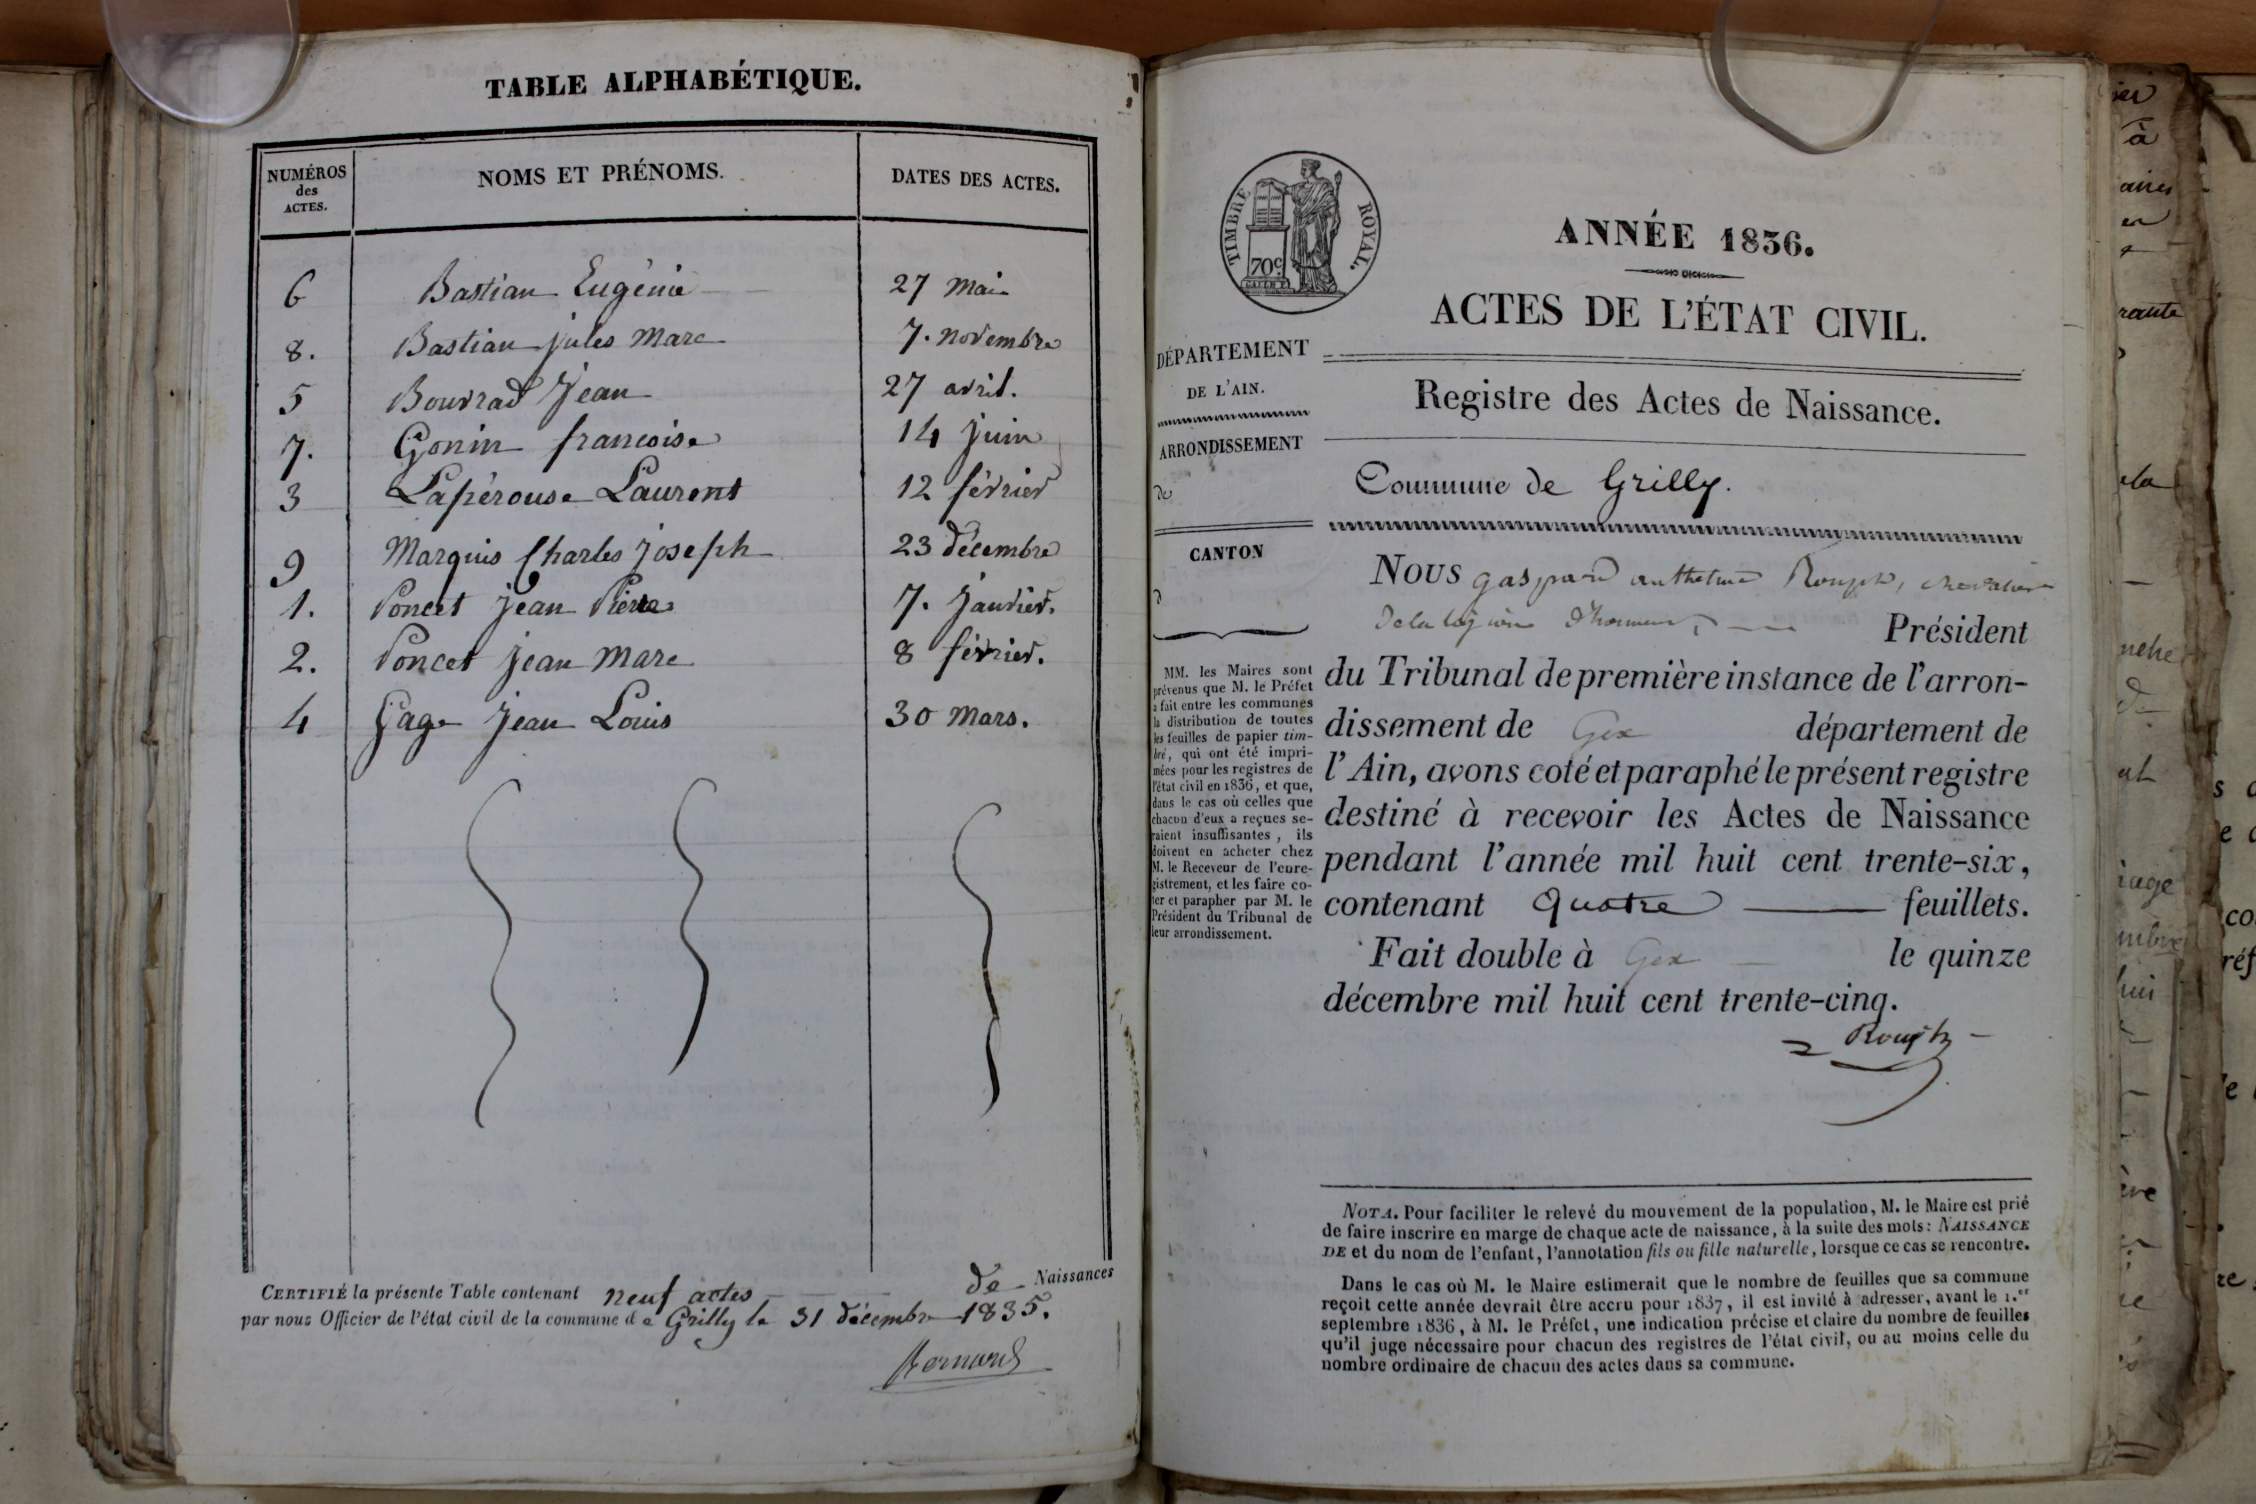 TABLE ALPHABÉTIQUE.
NUMÉROS des ACTES. NOMS ET PRÉNOMS. DATES DES ACTES.
6 Bastian Eugénie 27 Mai
8. Bastian jules Marc 7. novembre
5 Bouvrad Jean 27 avril.
7. Gonin francoise 14 juin
3 Lapérouse Laurent 12 février
9 Marquis Charles joseph 23 décembre
1. Poncet jean Pierre 7. janvier.
2. Poncet jean Marc 8 février.
4 Gage jean Louis 30 Mars.
CERTIFIÉ la présente Table contenant neuf actes de Naissances
par nous Officier de l'état civil de la commune de Grilly le 31 décembre 1835.
Bernard
TIMBRE ROYAL.
70 c
ANNÉE 1836.
ACTES DE L'ÉTAT CIVIL.
DÉPARTEMENT
DE L'AIN.
ARRONDISSEMENT
de
CANTON
d
MM. les Maires sont
prévenus que M. le Préfet
a fait entre les communes
la distribution de toutes
les feuilles de papier tim-
bré, qui ont été impri-
mées pour les registres de
l'état civil en 1836, et que,
dans le cas où celles que
chacun d'eux a reçues se-
raient insuffisantes, ils
doivent en acheter chez
M. le Receveur de l'enre-
gistrement, et les faire co-
ter et parapher par M. le
Président du Tribunal de
leur arrondissement.
Registre des Actes de Naissance.
Commune de Grilly.
NOUS gaspard anthelme Rouph, chevalier
de la légion d'honneur, Président
du Tribunal de première instance de l'arron-
dissement de Gex département de
l'Ain, avons coté et paraphé le présent registre
destiné à recevoir les Actes de Naissance
pendant l'année mil huit cent trente-six,
contenant quatre feuillets.
Fait double à Gex le quinze
décembre mil huit cent trente-cinq.
Rouph
NOTA. Pour faciliter le relevé du mouvement de la population, M. le Maire est prié
de faire inscrire en marge de chaque acte de naissance, à la suite des mots: NAISSANCE
DE et du nom de l'enfant, l'annotation fils ou fille naturelle, lorsque ce cas se rencontre.
Dans le cas où M. le Maire estimerait que le nombre de feuilles que sa commune
reçoit cette année devrait être accru pour 1837, il est invité à adresser, avant le 1.er
septembre 1836, à M. le Préfet, une indication précise et claire du nombre de feuilles
qu'il juge nécessaire pour chacun des registres de l'état civil, ou au moins celle du
nombre ordinaire de chacun des actes dans sa commune.